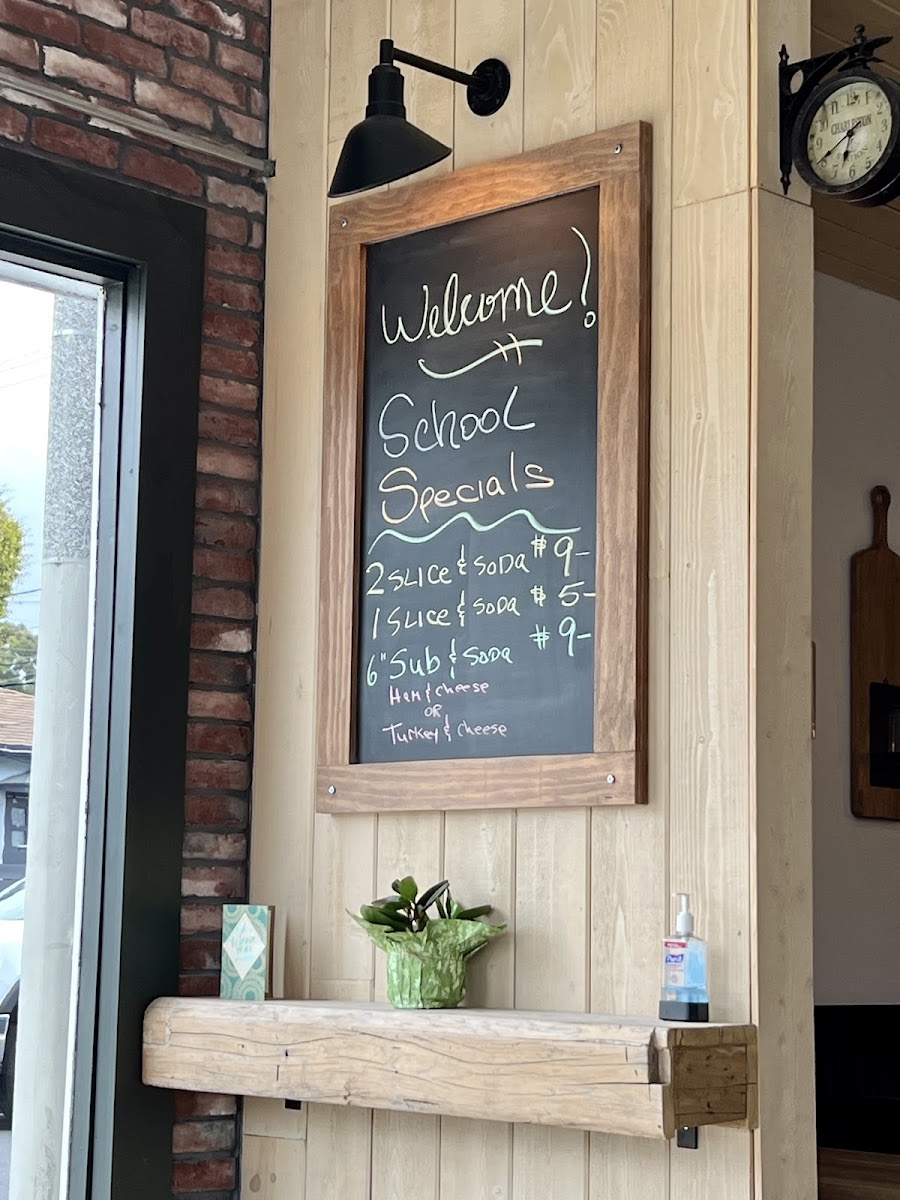 Welcome!
School
Specials
2 SLICE & SODA $9-
1 SLICE & SODA $5-
6" Sub & SODA $9-
HAM & cheese
OR
Turkey & cheese
CHARLESTON
Purell